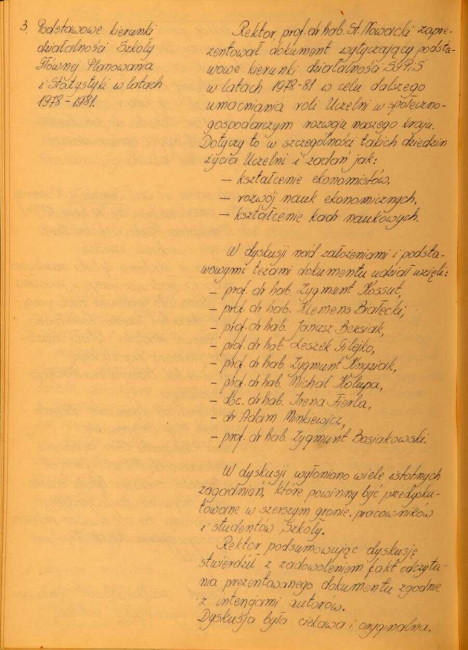 3. Podstawowe kierunki
działalności Szkoły
Głównej Planowania
i Statystyki w latach
1978-1981.
Rektor prof. dr hab. St. Nowacki zapre-
zentował dokument wytyczający podsta-
wowe kierunki działalności SGPiS
w latach 1978-81 w celu dalszego
umacniania roli Uczelni w społeczno-
gospodarczym rozwoju naszego kraju.
Dotyczy to w szczególności takich dziedzin
życia Uczelni i zadań jak:
- kształcenie ekonomistów,
- rozwój nauk ekonomicznych,
- kształcenie kadr naukowych.
W dyskusji nad założeniami i podsta-
wowymi tezami dokumentu udział wzięli:
- prof. dr hab. Zygmunt Kossut,
- prof. dr hab. Klemens Białecki,
- prof. dr hab. Janusz Beksiak,
- prof. dr hab. Leszek Gilejko,
- prof. dr hab. Zygmunt Knyziak,
- prof. dr hab. Michał Kolupa,
- doc. dr hab. Irena Fierla,
- dr Adam Minkiewicz,
- prof. dr hab. Zygmunt Bosiakowski.
W dyskusji wyłoniono wiele istotnych
zagadnień, które powinny być przedysku-
towane w szerszym gronie pracowników
i studentów Szkoły.
Rektor podsumowując dyskusję
stwierdził z zadowoleniem fakt odczyta-
nia prezentowanego dokumentu zgodnie
z intencjami autorów.
Dyskusja była ciekawa i oryginalna.